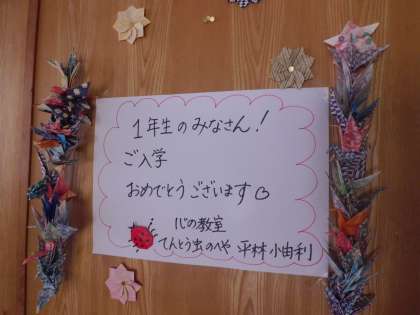 1年生のみなさん!
ご入学
おめでとうございます
心の教室
てんとう虫のへや 平林 小由利